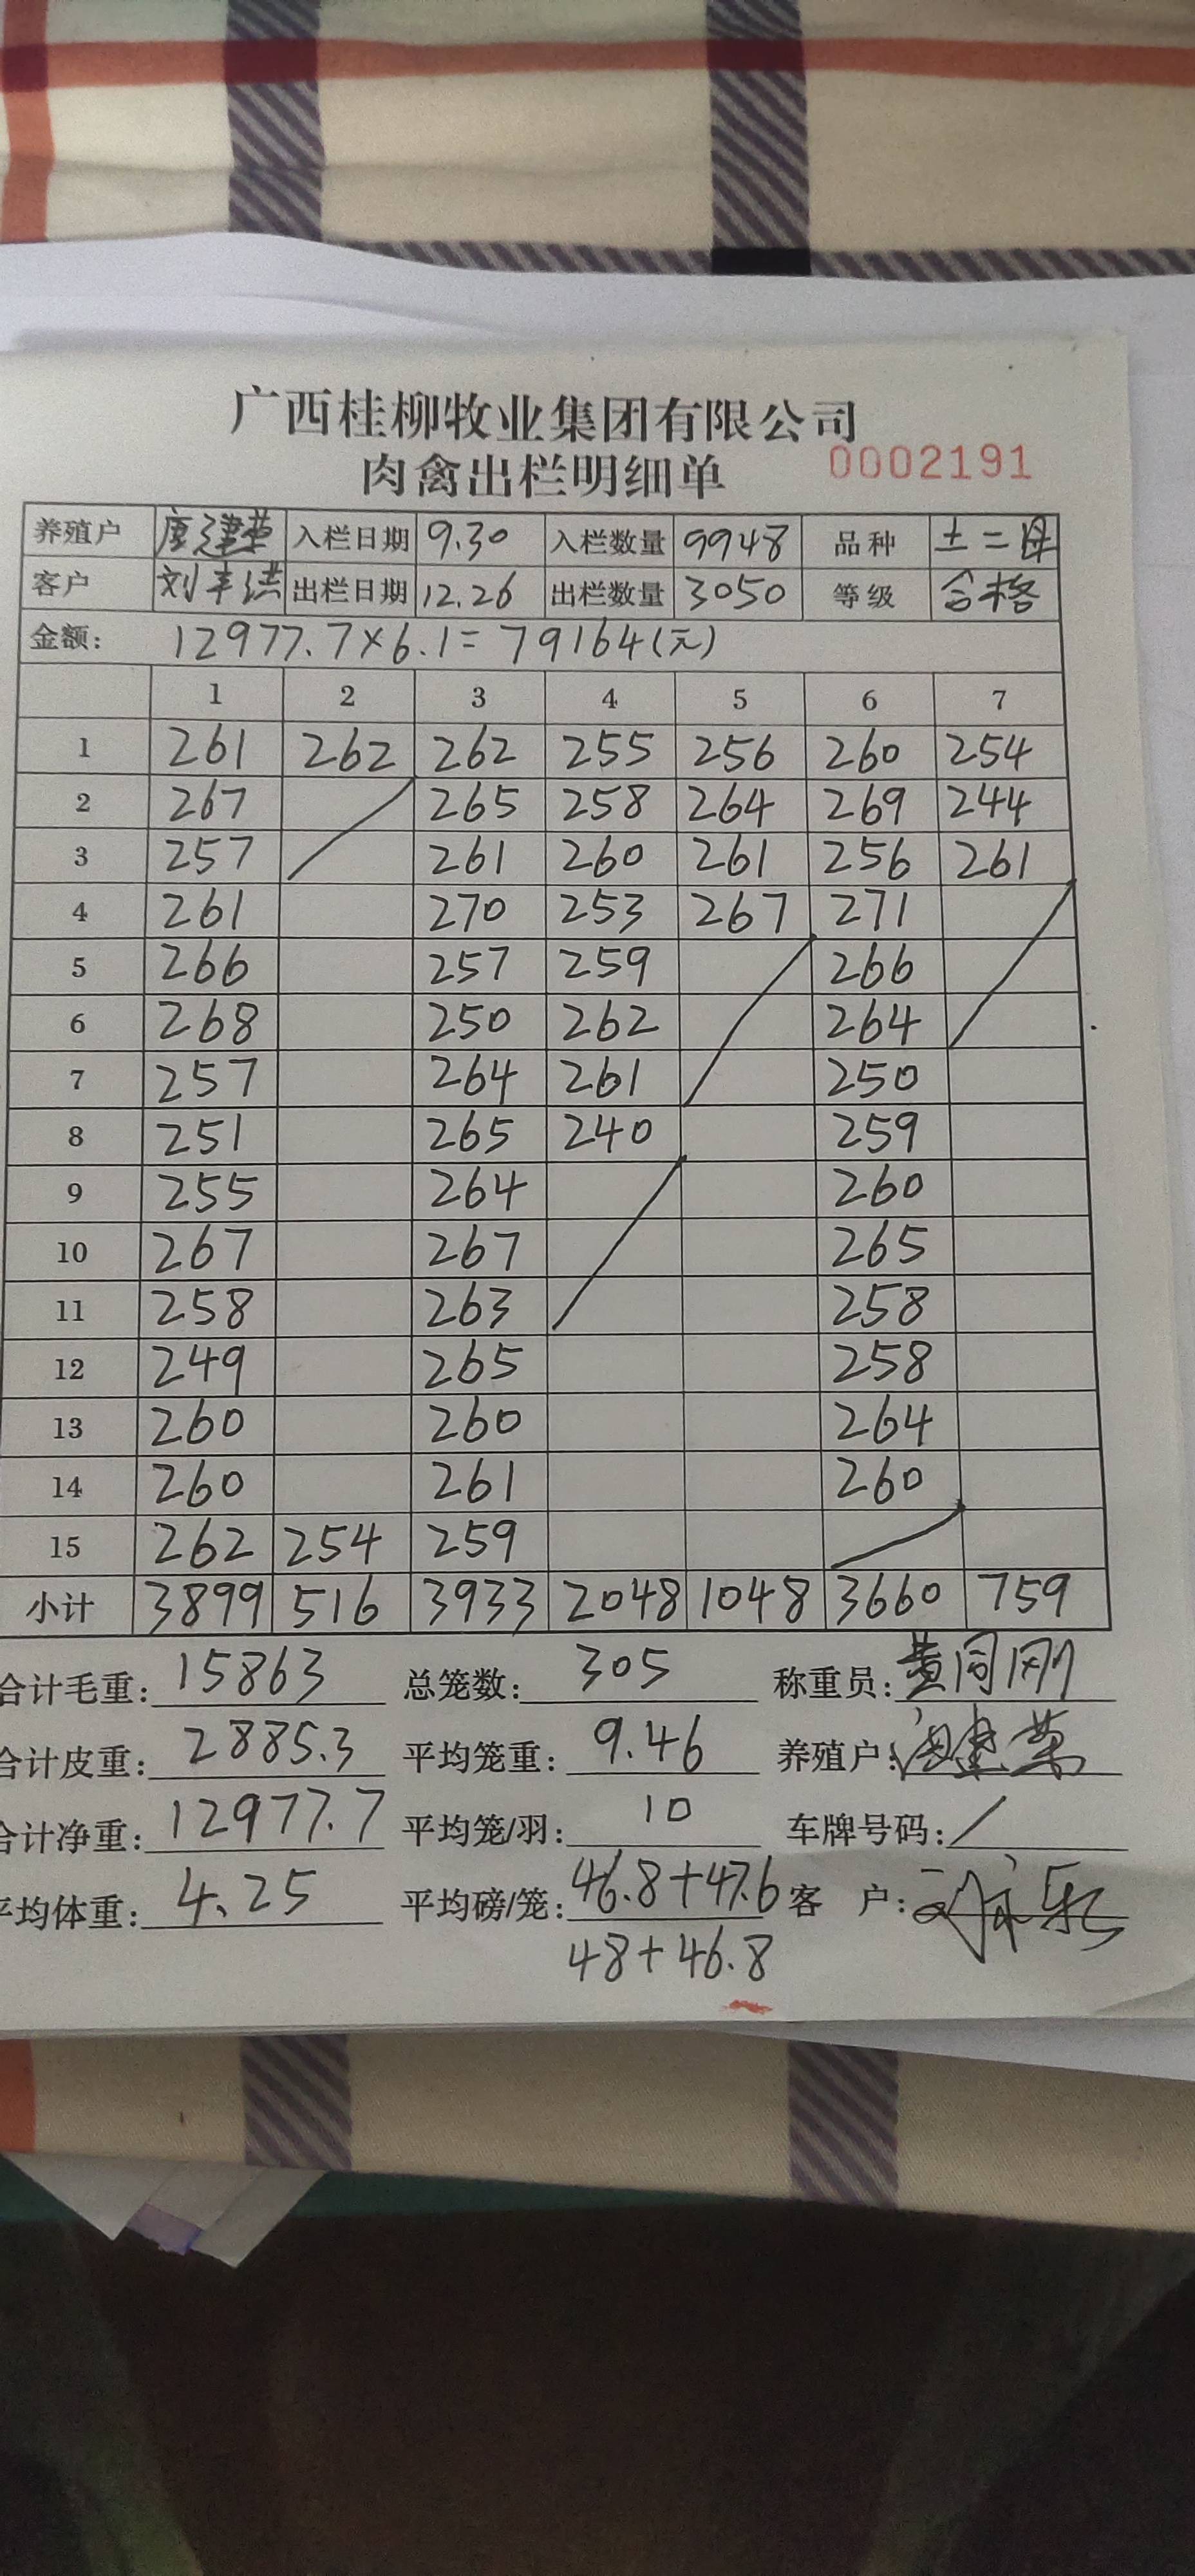 广西桂柳牧业集团有限公司
肉禽出栏明细单 0002191
养殖户 唐建荣 入栏日期 9.30 入栏数量 9948 品种 土二母
客户 刘丰洪 出栏日期 12.26 出栏数量 3050 等级 合格
金额: 12977.7×6.1=79164(元)
1 2 3 4 5 6 7
1 261 262 262 255 256 260 254
2 267 265 258 264 269 244
3 257 261 260 261 256 261
4 261 270 253 267 271
5 266 257 259 266
6 268 250 262 264
7 257 264 261 250
8 251 265 240 259
9 255 264 260
10 267 267 265
11 258 263 258
12 249 265 258
13 260 260 264
14 260 261 260
15 262 254 259
小计 3899 516 3933 2048 1048 3660 759
合计毛重: 15863 总笼数: 305 称重员: 黄同刚
合计皮重: 2885.3 平均笼重: 9.46 养殖户:
合计净重: 12977.7 平均笼/羽: 10 车牌号码: /
平均体重: 4.25 平均磅/笼: 46.8+47.6 客 户:
48+46.8